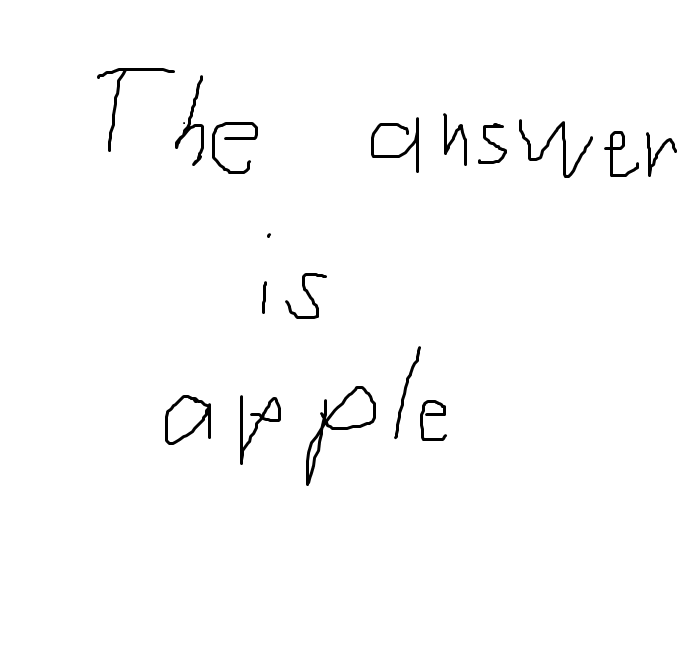 The answer
is
apple